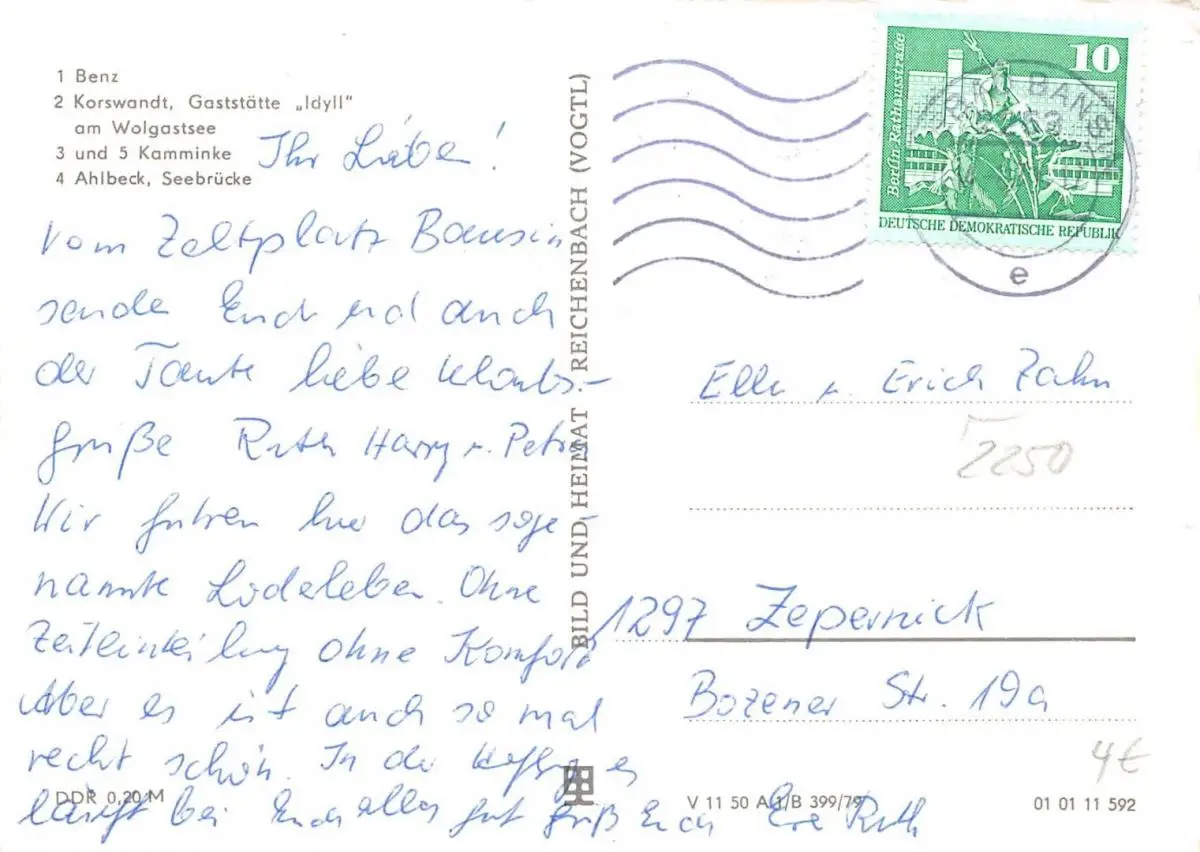 1 Benz
2 Korswandt, Gaststätte „Idyll"
am Wolgastsee
3 und 5 Kamminke
4 Ahlbeck, Seebrücke
Ihr Lieben!
Vom Zeltplatz Bansin
senden Euch und auch
der Tante liebe Urlaubs-
grüße Ruth Harry u. Petra
Wir führen hier das soge-
nannte Lodeleben. Ohne
Zeiteinteilung ohne Komfort
Aber es ist auch so mal
recht schön. In der Hoffng es
läuft bei Euch alles gut grüß Euch Eure Ruth
DDR 0,20 M
BILD UND HEIMAT REICHENBACH (VOGTL)
10
Berlin, Rathausstraße
DEUTSCHE DEMOKRATISCHE REPUBLIK
BANS
e
Elli u. Erich Zahn
2250
1297 Zepernick
Bozener Str. 19a
4€
V 11 50 A 1/B 399/79
01 01 11 592